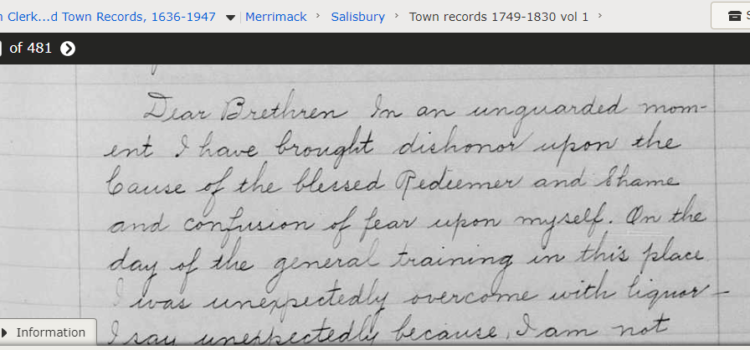 n Clerk...d Town Records, 1636-1947 Merrimack › Salisbury › Town records 1749-1830 vol 1 ›
of 481
Dear Brethren In an unguarded mom-
ent I have brought dishonor upon the
Cause of the blessed Redeemer and Shame
and confusion of fear upon myself. On the
day of the general training in this place
I was unexpectedly overcome with liquor—
I say unexpectedly because, I am not
Information